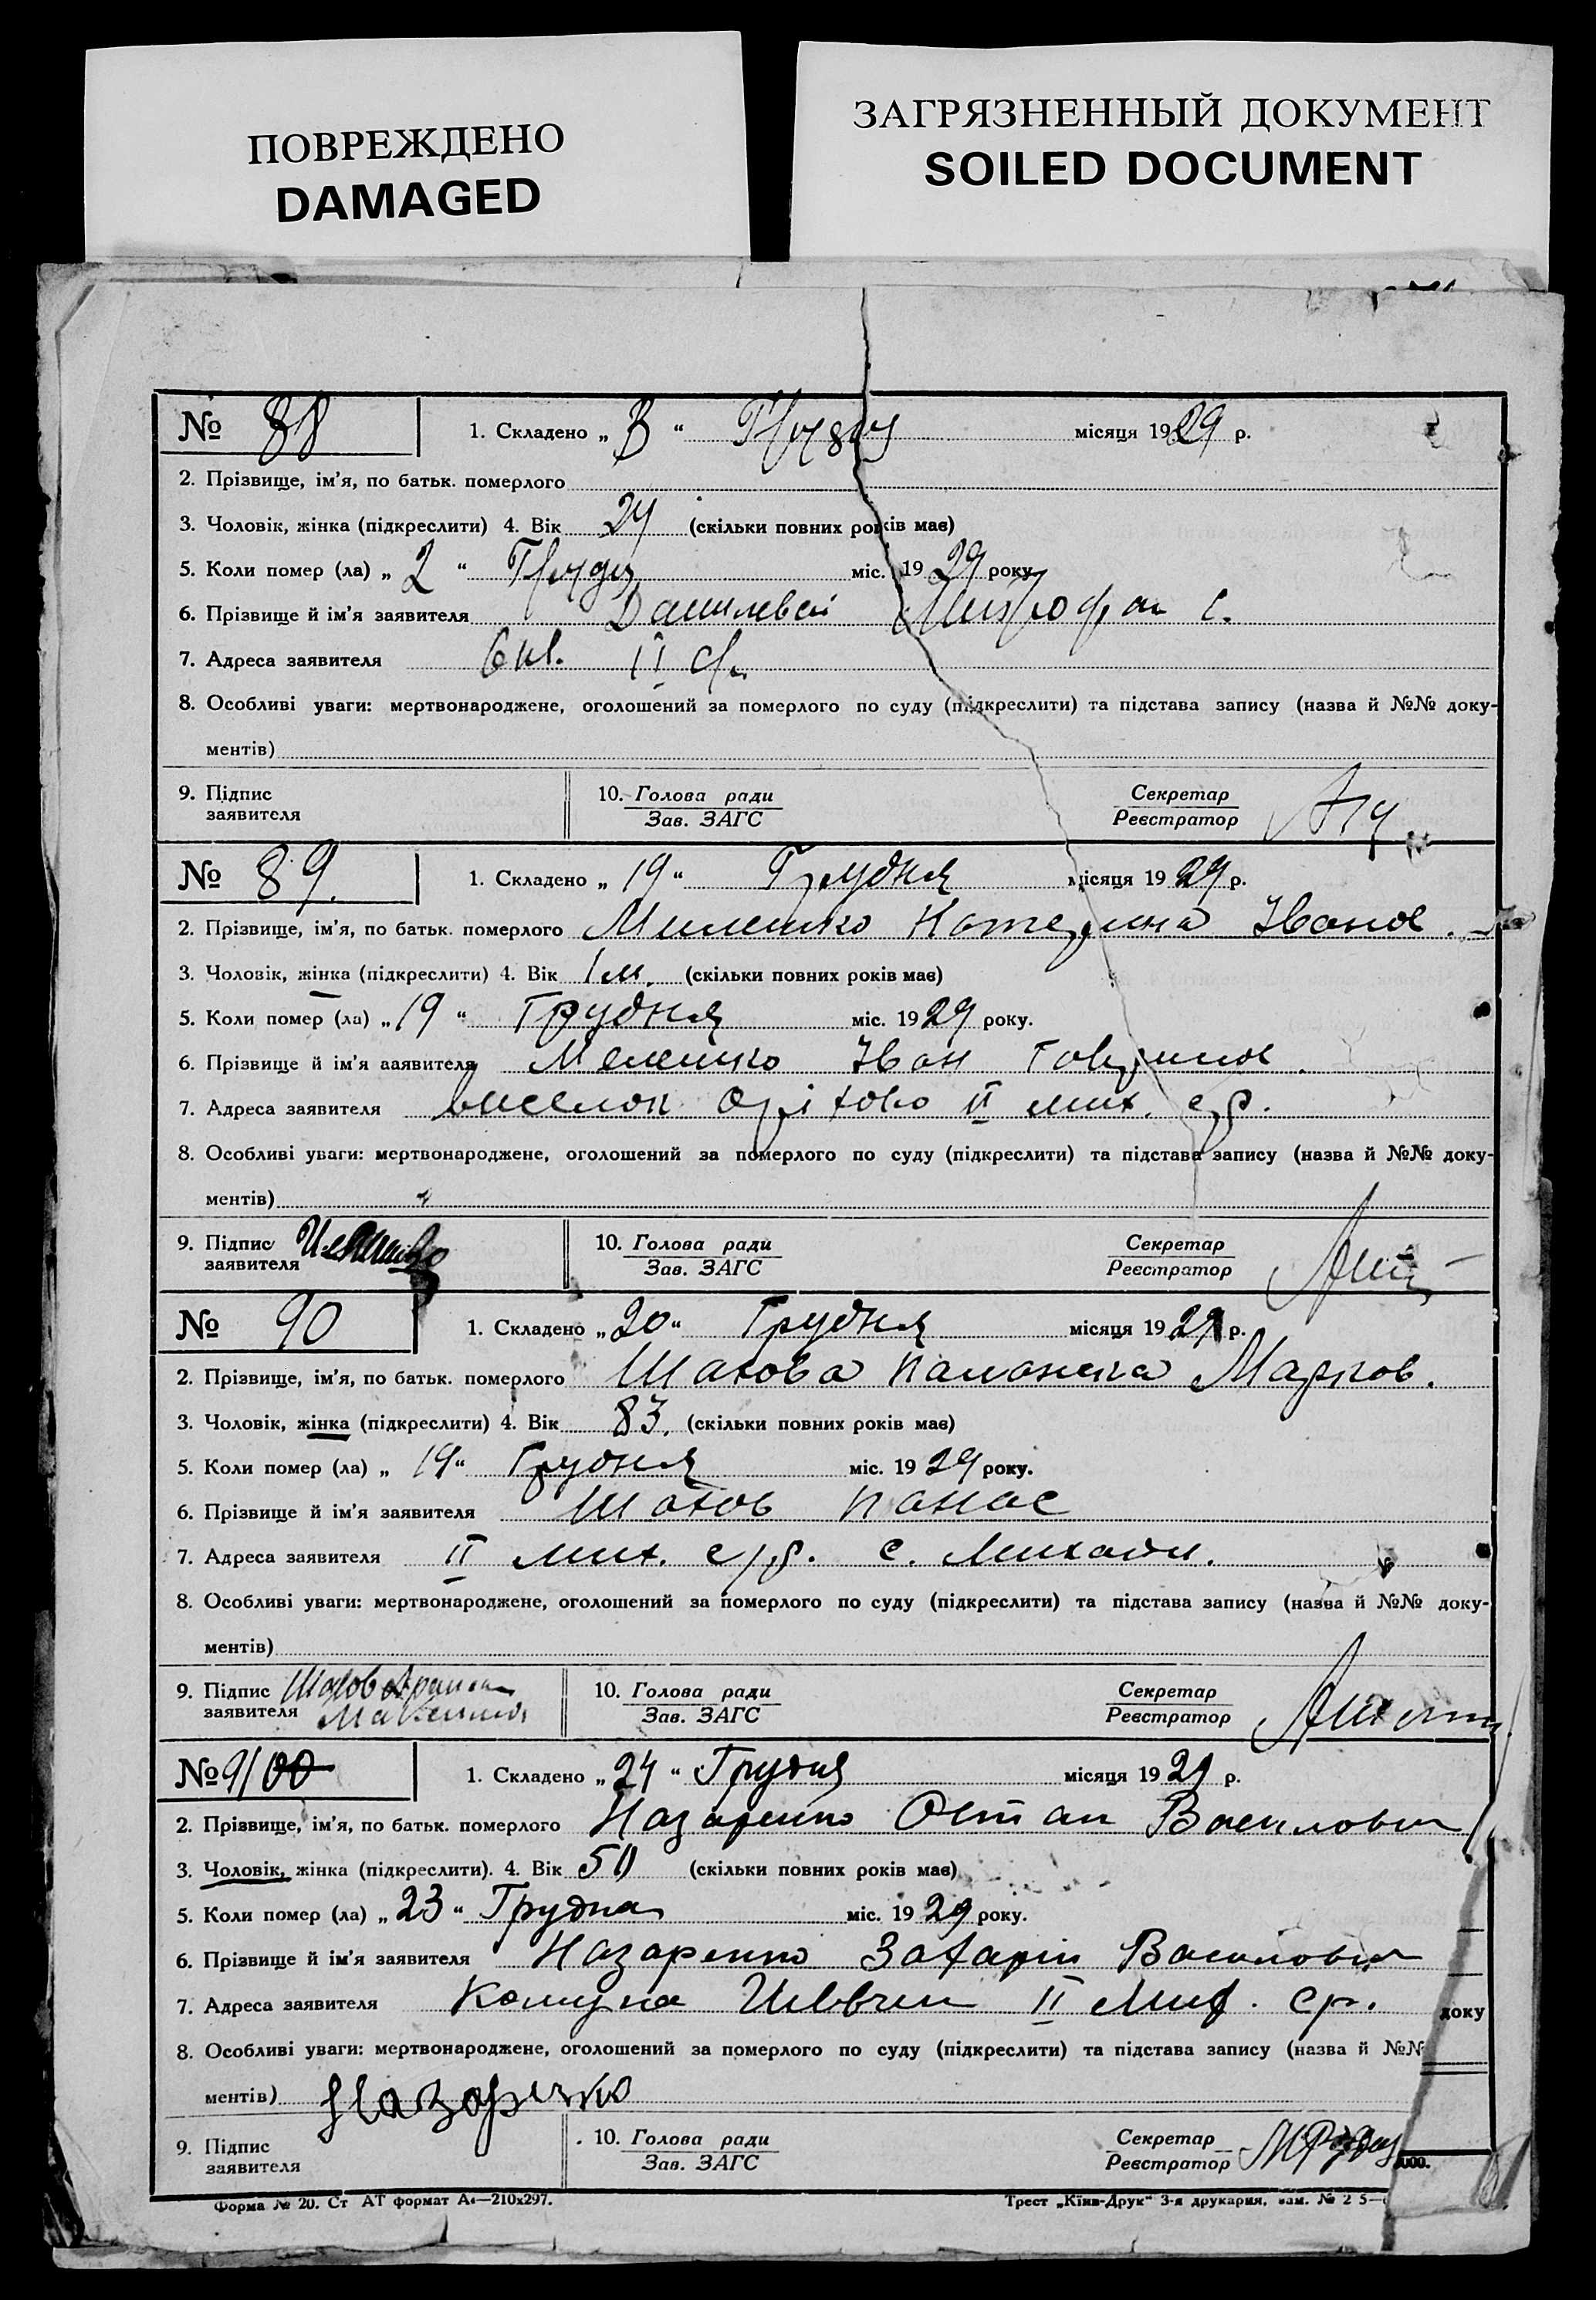 ПОВРЕЖДЕНО
DAMAGED
ЗАГРЯЗНЕННЫЙ ДОКУМЕНТ
SOILED DOCUMENT
№ 88 1. Складено „ “ місяця 1929 р.
2. Прізвище, ім'я, по батьк. померлого
3. Чоловік, жінка (підкреслити) 4. Вік 24 (скільки повних років має)
5. Коли помер (ла) „ 2 “ міс. 1929 року
6. Прізвище й ім'я заявителя с.
7. Адреса заявителя II
8. Особливі уваги: мертвонароджене, оголошений за померлого по суду (підкреслити) та підстава запису (назва й №№ доку-
ментів)
9. Підпис заявителя 10. Голова ради Зав. ЗАГС Секретар Реєстратор
№ 89. 1. Складено „ 19 “ Грудня місяця 1929 р.
2. Прізвище, ім'я, по батьк. померлого Катерина Іванов.
3. Чоловік, жінка (підкреслити) 4. Вік 1 м. (скільки повних років має)
5. Коли помер (ла) „ 19 “ Грудня міс. 1929 року.
6. Прізвище й ім'я заявителя Мелешко Іван
7. Адреса заявителя виселок Оріхово II мих. с/р.
8. Особливі уваги: мертвонароджене, оголошений за померлого по суду (підкреслити) та підстава запису (назва й №№ доку-
ментів)
9. Підпис заявителя 10. Голова ради Зав. ЗАГС Секретар Реєстратор
№ 90 1. Складено „ 20 “ Грудня місяця 1929 р.
2. Прізвище, ім'я, по батьк. померлого Шахова Марков.
3. Чоловік, жінка (підкреслити) 4. Вік 83. (скільки повних років має)
5. Коли помер (ла) „ 19 “ Грудня міс. 1929 року.
6. Прізвище й ім'я заявителя Шахов Панас
7. Адреса заявителя II мих. с/р. с.
8. Особливі уваги: мертвонароджене, оголошений за померлого по суду (підкреслити) та підстава запису (назва й №№ доку-
ментів)
9. Підпис заявителя Шахов 10. Голова ради Зав. ЗАГС Секретар Реєстратор
№ 91 1. Складено „ 24 “ Грудня місяця 1929 р.
2. Прізвище, ім'я, по батьк. померлого Назаренко Остап Василович
3. Чоловік, жінка (підкреслити). 4. Вік 50 (скільки повних років має)
5. Коли помер (ла) „ 23 “ Грудня міс. 1929 року.
6. Прізвище й ім'я заявителя Назаренко Захарій Василович
7. Адреса заявителя Комуна II Мих. ср. доку
8. Особливі уваги: мертвонароджене, оголошений за померлого по суду (підкреслити) та підстава запису (назва й №№
ментів) Назаренко
9. Підпис заявителя 10. Голова ради Зав. ЗАГС Секретар Реєстратор
Форма № 20. Ст АТ формат А4—210x297. Трест „Київ-Друк“ 3-я друкарня, зам. №